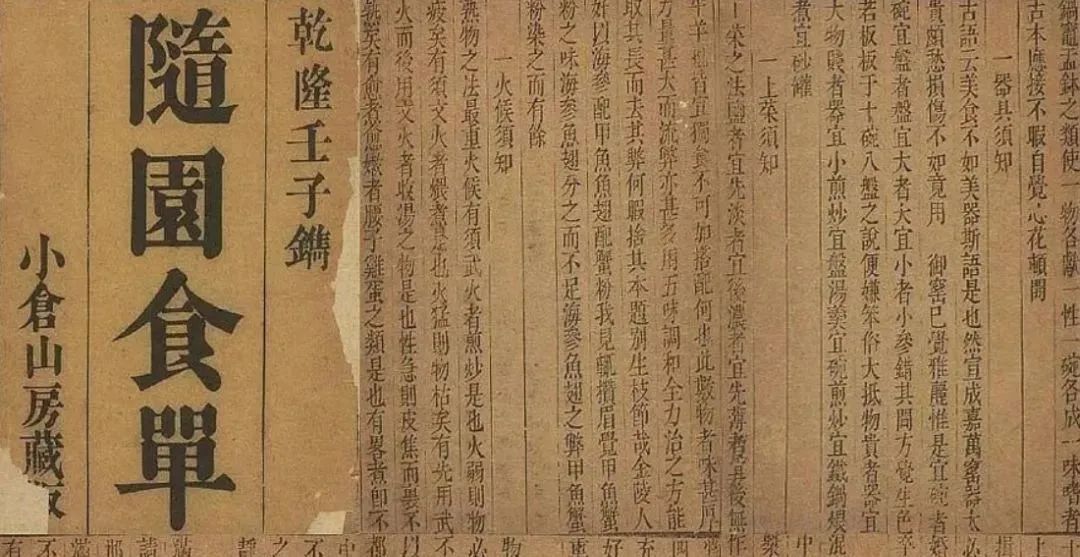 鍋竈盂鉢之類使一物各獻一性一碗各成一味嗜者
古本應接不暇自覺心花頓開
一器具須知
古語云美食不如美器斯語是也然宣成嘉萬窰器太
貴頗愁損傷不如竟用 御窰已覺雅麗惟是宜碗者
碗宜盤者盤宜大者大宜小者小參錯其間方覺生色
若板板于十碗八盤之說便嫌笨俗大抵物貴者器宜
大物賤者器宜小煎炒宜盤湯羹宜碗煎炒宜鐵鍋煨
煮宜砂罐
一上菜須知
菜之法鹽者宜先淡者宜後濃者宜先薄者宜後無
牛羊皆宜獨食不可加搭配何也此數物者味甚厚
力量甚大而流弊亦甚多用五味調和全力治之方能
取其長而去其弊何暇捨其本題別生枝節哉金陵人
好以海參配甲魚魚翅配蟹粉我見輒攢眉覺甲魚蟹
粉之味海參魚翅分之而不足海參魚翅之弊甲魚蟹
粉染之而有餘
一火候須知
熟物之法最重火候有須武火者煎炒是也火弱則物
疲矣有須文火者煨煮是也火猛則物枯矣有先用武
火而後用文火者收湯之物是也性急則皮焦而裏不
熟矣有愈煮愈嫩者腰子雞蛋之類是也有畧煮即不
乾隆壬子鐫
隨園食單
小倉山房藏版